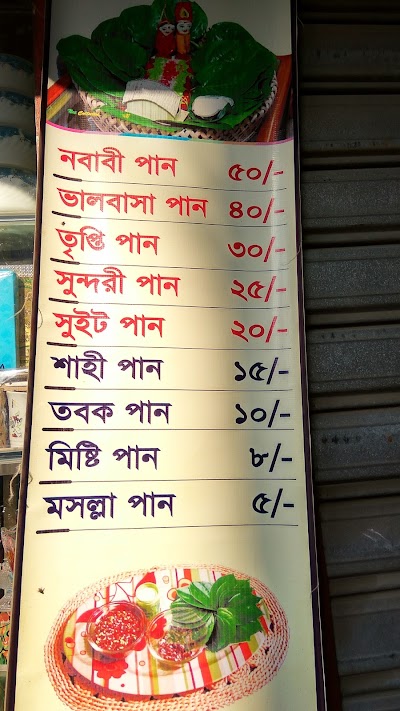 নবাবী পান ৫০/-
ভালবাসা পান ৪০/-
তৃপ্তি পান ৩০/-
সুন্দরী পান ২৫/-
সুইট পান ২০/-
শাহী পান ১৫/-
তবক পান ১০/-
মিষ্টি পান ৮/-
মসল্লা পান ৫/-